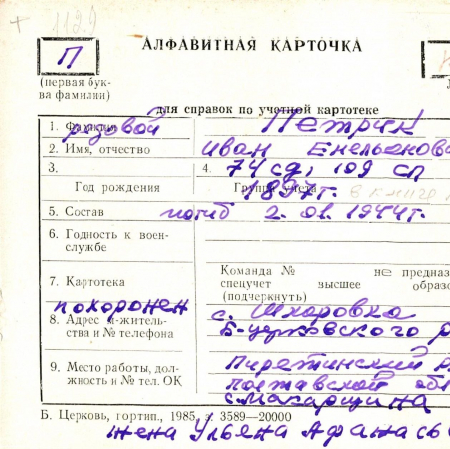 + 1129
П
АЛФАВИТНАЯ КАРТОЧКА
(первая бук-
ва фамилии)
для справок по учетной картотеке
1. Фамилия рядовой Петрик
2. Имя, отчество Иван Емельянов
3. 4. 74 сд, 109 сп
Год рождения Группа учета 1897г. в книге
5. Состав погиб 2.01.1944г.
6. Годность к воен-
службе
Команда № не предназ
7. Картотека спецучет высшее образо
(подчеркнуть)
похоронен с. Шкаровка
8. Адрес м-житель-
ства и № телефона Б-церковского р
9. Место работы, дол-
жность и № тел. ОК Пирятинский р
полтавской обл
с. Макарщина
Б. Церковь, гортип., 1985, з. 3589—20000
жена Ульяна Афанасьев